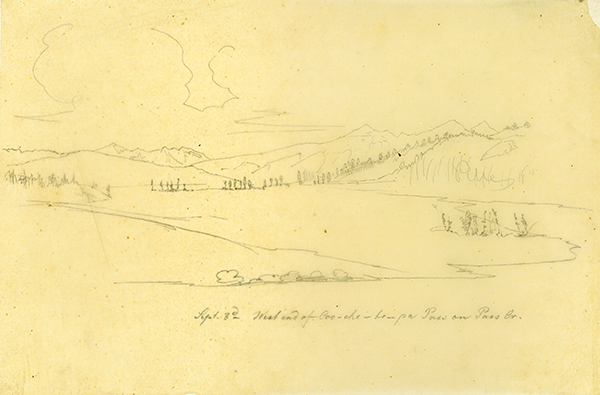 Sept. 8th West end of Coo-che-to-pa Pass on Pass Cr.